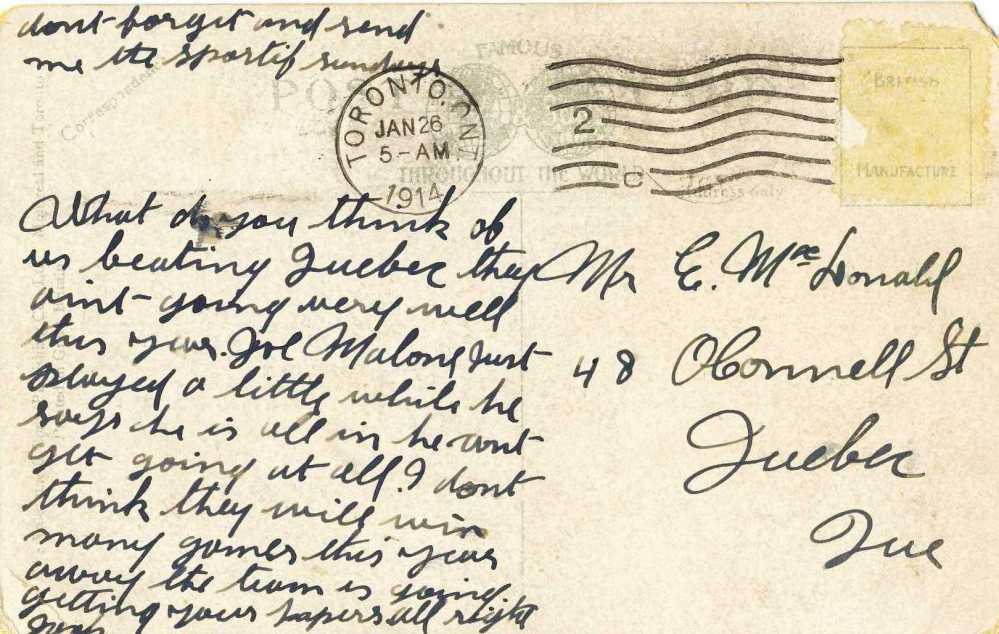 dont forget and send
me the sportif sundays
Correspondence
FAMOUS
POST
THROUGHOUT THE WORLD
Address only
TORONTO, ONT
JAN 26
5-AM
1914
2
C
BRITISH
MANUFACTURE
What do you think of
us beating Quebec they
aint going very well
this year. Joe Malone Just
played a little while he
says he is all in he cant
get going at all. I dont
think they will win
many games this year
away the team is going.
getting your papers all right
Mr E. McDonald
48 OConnell St
Quebec
Que